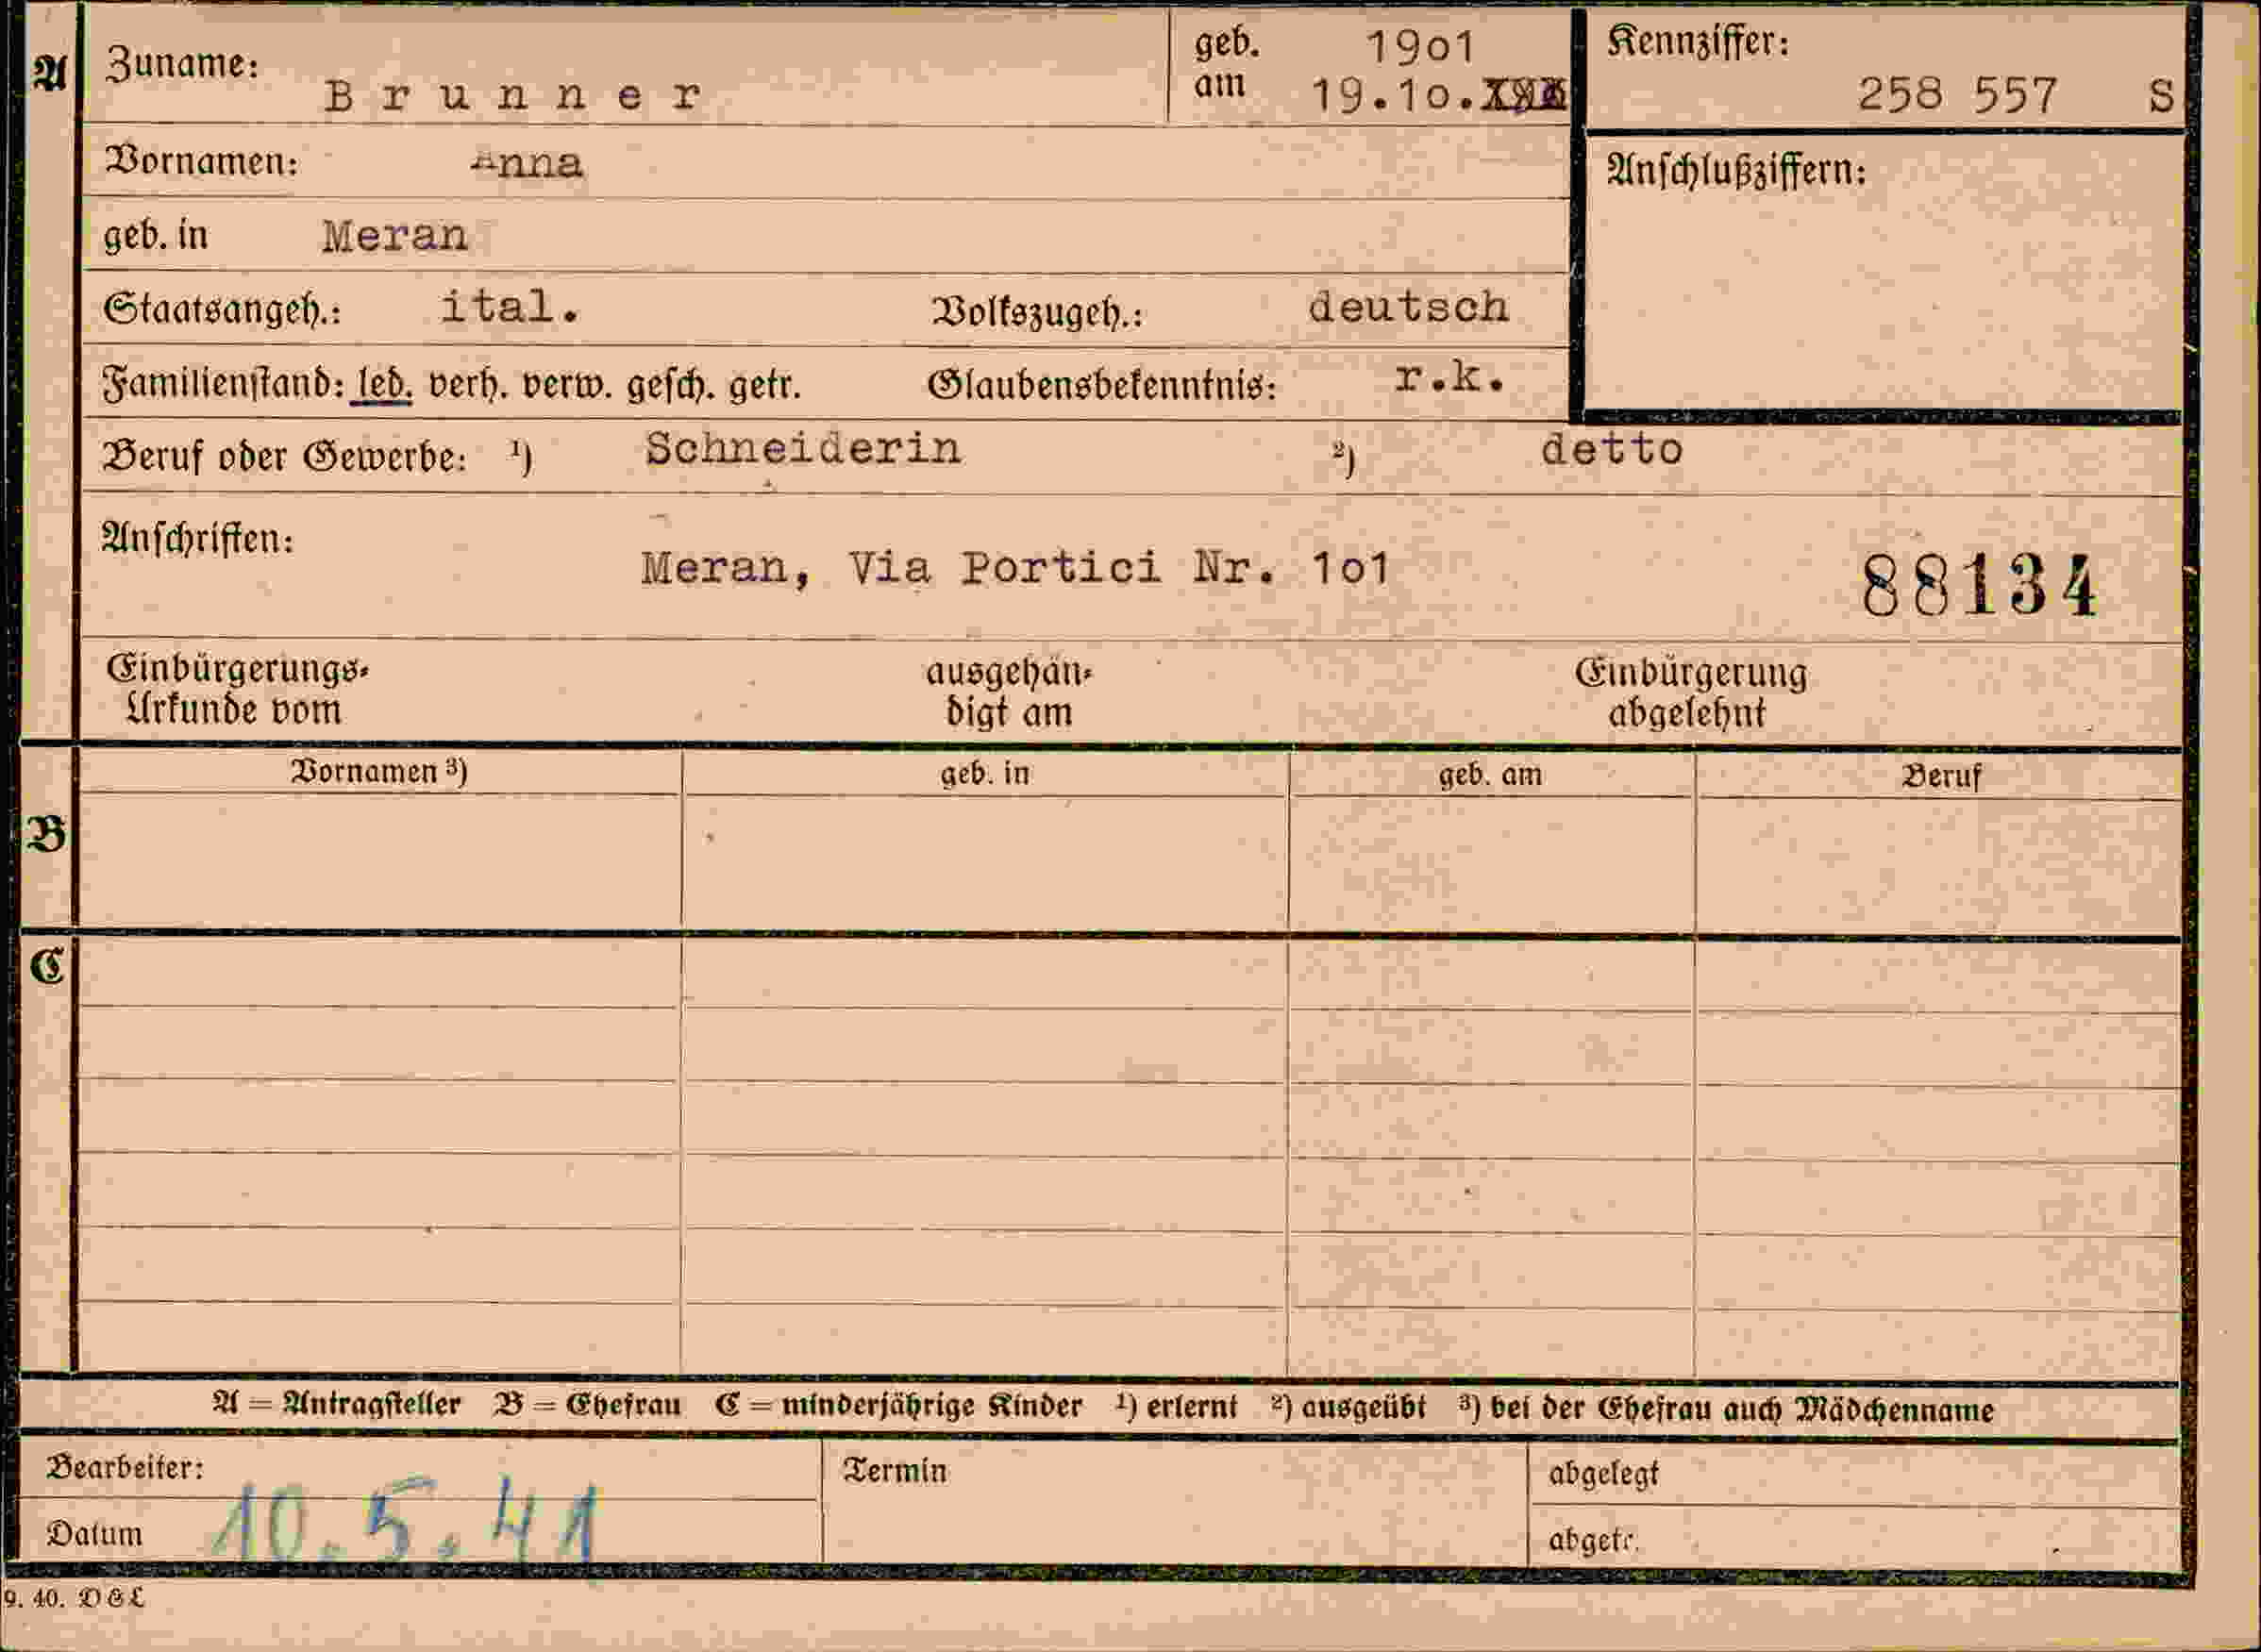 A Zuname: Brunner geb. am 1901 19.10. Kennziffer: 258 557 S
Vornamen: Anna Anschlußziffern:
geb. in Meran
Staatsangeh.: ital. Volkszugeh.: deutsch
Familienstand: led. verh. verw. gesch. getr. Glaubensbekenntnis: r.k.
Beruf oder Gewerbe: ¹) Schneiderin ²) detto
Anschriften: Meran, Via Portici Nr. 1o1 88134
Einbürgerungs- ausgehän- Einbürgerung
Urkunde vom digt am abgelehnt
Vornamen ³) geb. in geb. am Beruf
B
C
A = Antragsteller B = Ehefrau C = minderjährige Kinder ¹) erlernt ²) ausgeübt ³) bei der Ehefrau auch Mädchenname
Bearbeiter: Termin abgelegt
Datum 10.5.41 abgetr.
9. 40. DGL